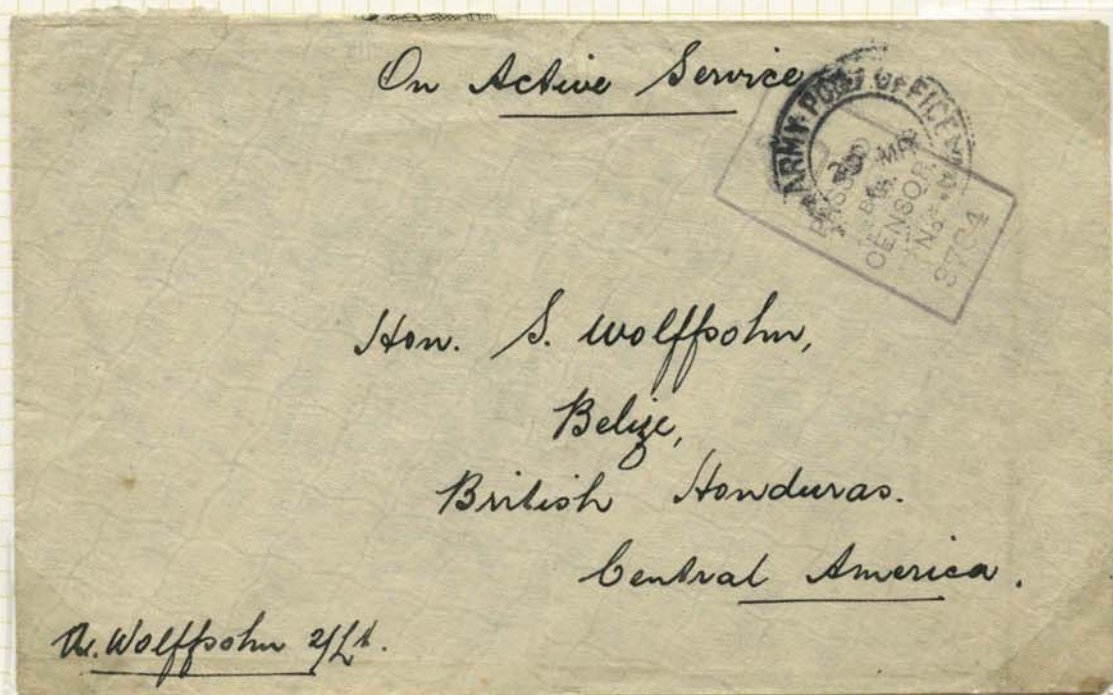 On Active Service
ARMY POST OFFICE
PASSED
BY
CENSOR
No.
Hon. S. Wolffsohn,
Belize,
British Honduras.
Central America.
Wolffsohn 2/Lt.